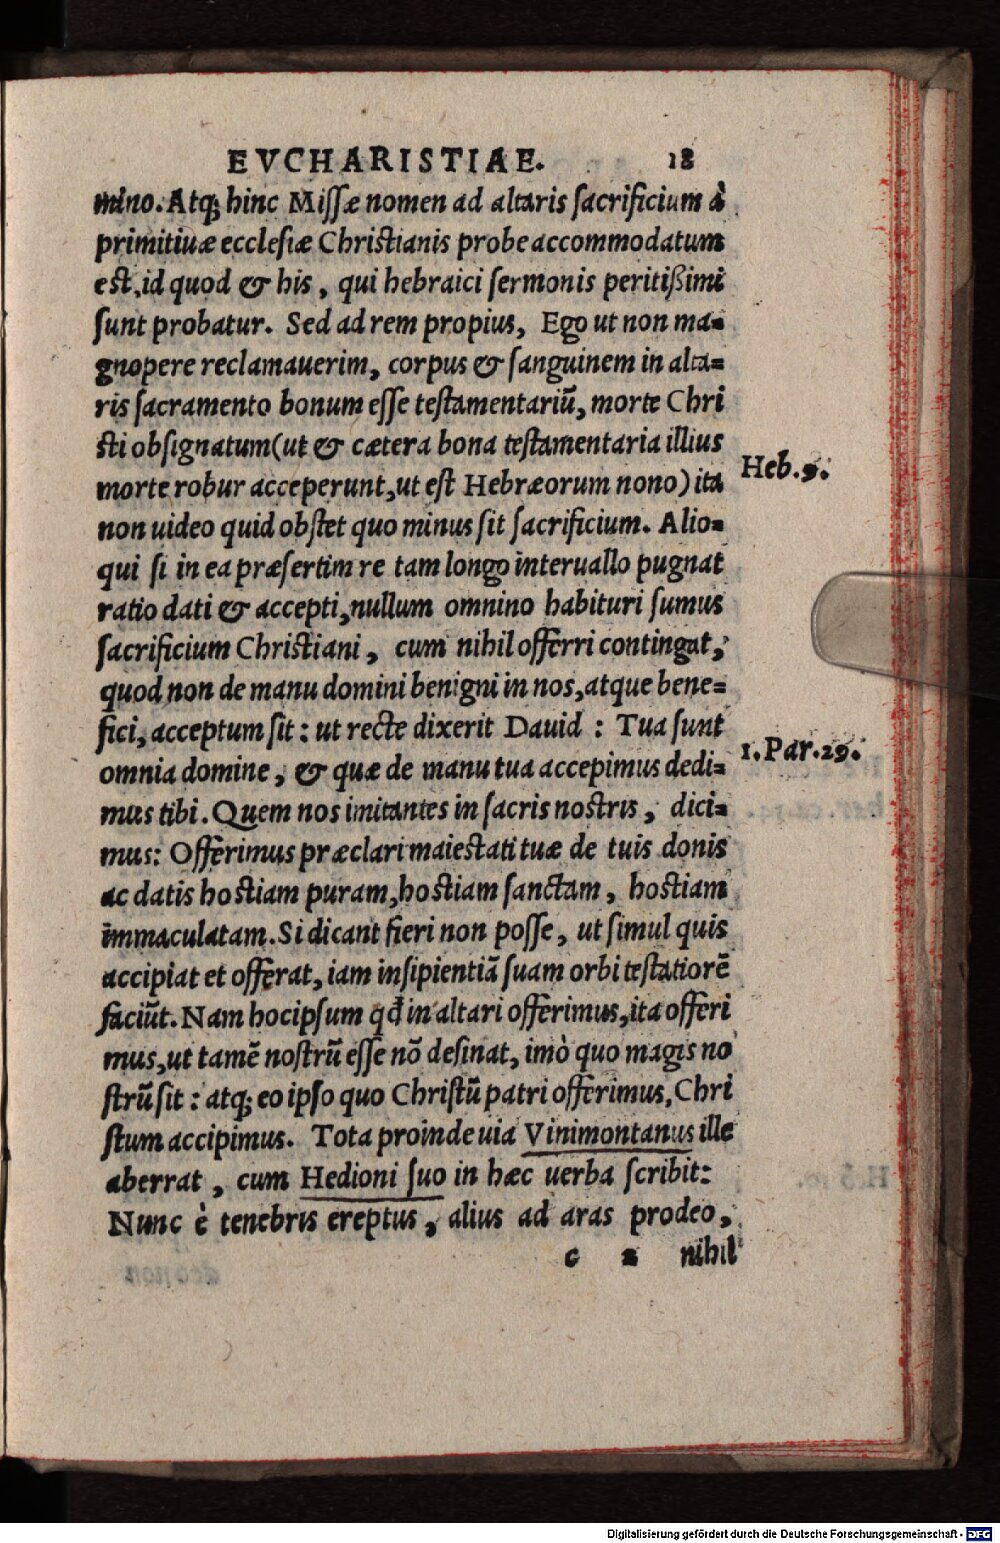 EVCHARISTIAE. 18
mino. Atq; hinc Missæ nomen ad altaris sacrificium à
primitiuæ ecclesiæ Christianis probe accommodatum
est, id quod & his, qui hebraici sermonis peritißimi
sunt probatur. Sed ad rem propius, Ego ut non ma=
gnopere reclamauerim, corpus & sanguinem in alta=
ris sacramento bonum esse testamentariũ, morte Chri
sti obsignatum (ut & cætera bona testamentaria illius
morte robur acceperunt, ut est Hebræorum nono) ita
Heb. 9.
non uideo quid obstet quo minus sit sacrificium. Alio=
qui si in ea præsertim re tam longo interuallo pugnat
ratio dati & accepti, nullum omnino habituri sumus
sacrificium Christiani, cum nihil offerri contingat,
quod non de manu domini benigni in nos, atque bene=
fici, acceptum sit: ut recte dixerit Dauid: Tua sunt
omnia domine, & quæ de manu tua accepimus dedi=
1. Par. 29.
mus tibi. Quem nos imitantes in sacris nostris, dici=
mus: Offerimus præclari maiestati tuæ de tuis donis
ac datis hostiam puram, hostiam sanctam, hostiam
immaculatam. Si dicant fieri non posse, ut simul quis
accipiat et offerat, iam insipientiã suam orbi testatiorẽ
faciũt. Nam hoc ipsum qđ in altari offerimus, ita offeri
mus, ut tamẽ nostrũ esse nõ desinat, imò quo magis no
strũ sit: atq; eo ipso quo Christũ patri offerimus, Chri
stum accipimus. Tota proinde uia Vinimontanus ille
aberrat, cum Hedioni suo in hæc uerba scribit:
Nunc è tenebris ereptus, alius ad aras prodeo,
c 2 nihil
Digitalisierung gefördert durch die Deutsche Forschungsgemeinschaft - DFG